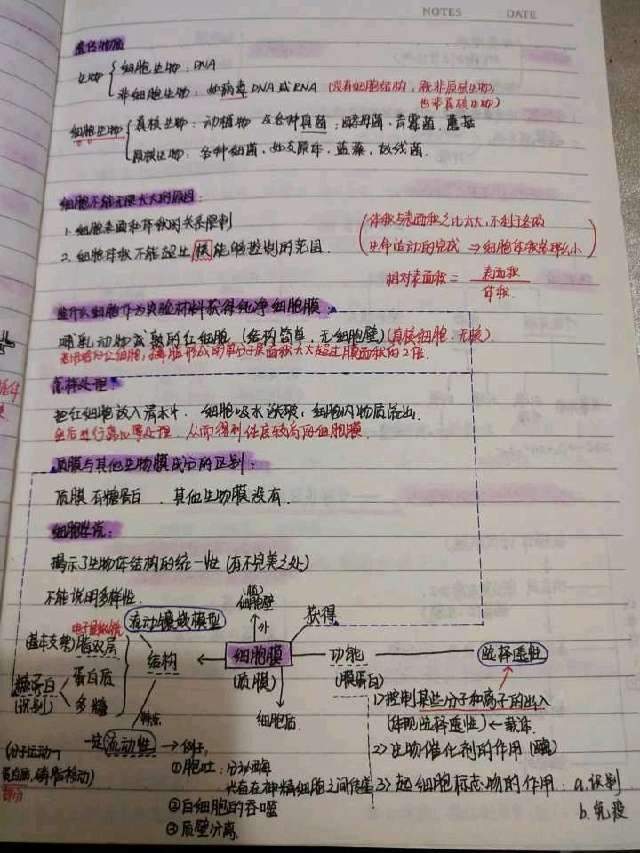 NOTES DATE
遗传物质
生物
细胞生物：DNA
非细胞生物：如病毒 DNA或RNA (没有细胞结构，既非原核生物，
也非真核生物)
细胞生物
真核生物：动植物 及各种真菌：酵母菌、青霉菌、蘑菇
原核生物：各种细菌、如支原体、蓝藻、放线菌.
细胞不能无限长大的原因：
1. 细胞表面和体积的关系限制
2. 细胞体积不能超出核能够控制的范围.
(体积与表面积之比太大，不利于
生命活动的完成 ⇒ 细胞体积
相对表面积 = 表面积
体积
细胞作为实验材料获得纯净细胞膜
哺乳动物成熟的红细胞 (结构简单，无细胞壁) (真核细胞.无核)
大大超过膜面积的2倍.
怎样处理：
把红细胞放入清水中. 细胞吸水涨破，细胞内物质流出.
然后进行离心等处理，从而得到纯度较高的细胞膜.
质膜与其他生物膜成分的区别：
质膜有糖蛋白. 其他生物膜没有.
细胞学说：
揭示了生物体结构的统一性 (有不完美之处)
不能说明多样性.
细胞壁
电子显微镜
流动镶嵌模型
外
获得
(基本支架) 脂双层
结构
细胞膜
功能
选择透性
糖蛋白
(识别)
蛋白质
多糖
(质膜)
(膜蛋白)
1> 控制某些分子和离子的出入
特点
细胞质
(体现选择透性) ← 载体
一定流动性 → 例：
2> 生物催化剂的作用 (酶)
(分子运动
蛋白质，磷脂移动)
①胞吐：分泌
存在神经细胞之间传递
3> 起细胞标志物的作用：a.识别
②白细胞的吞噬
b.免疫
③质壁分离.